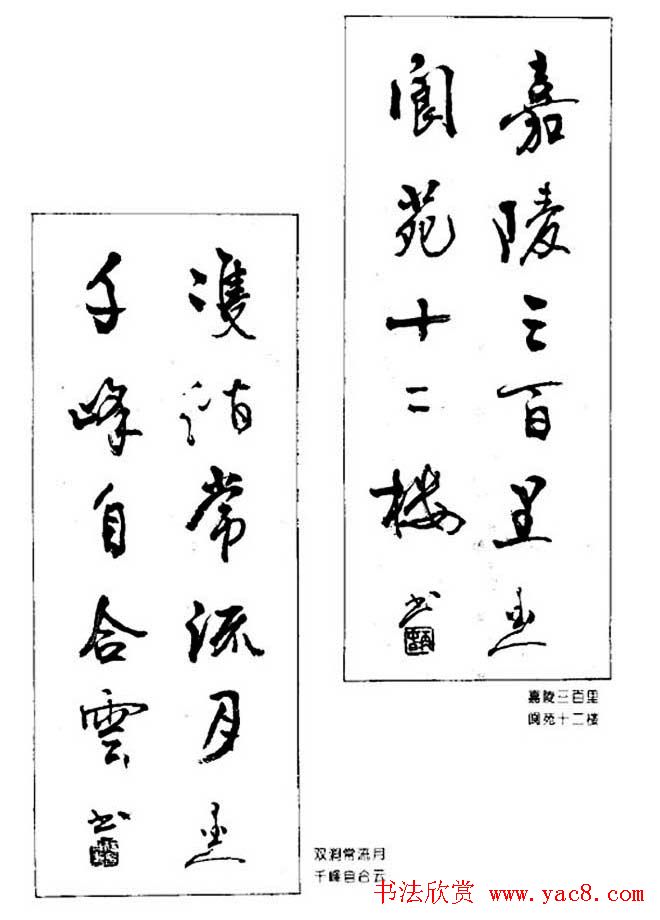 嘉陵三百里
閬苑十二楼
书
嘉陵三百里
阆苑十二楼
雙澗常流月
千峰自合雲
书
双涧常流月
千峰自合云
书法欣赏 www.yac8.com